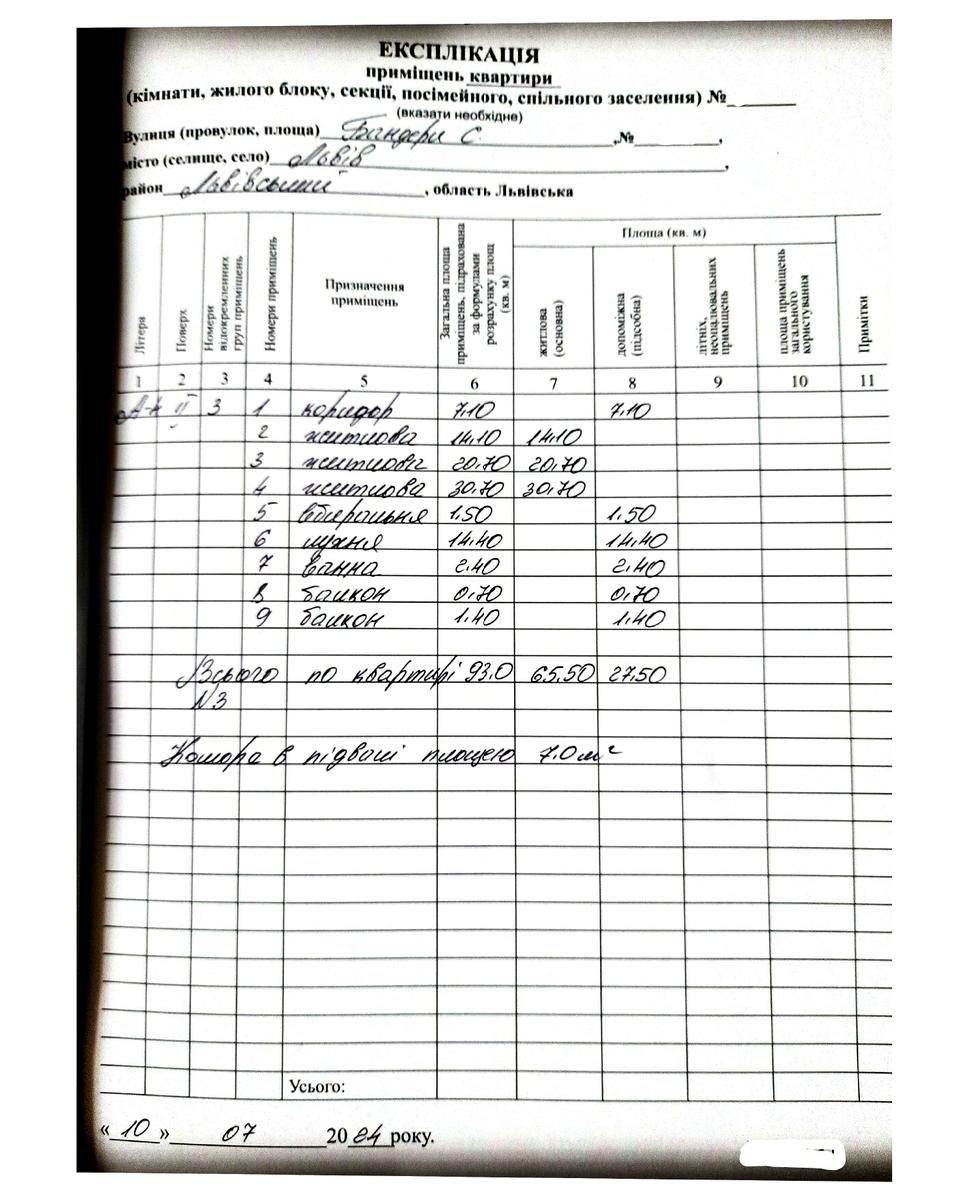 ЕКСПЛІКАЦІЯ
приміщень квартири
(кімнати, жилого блоку, секції, посімейного, спільного заселення) №
(вказати необхідне)
Вулиця (провулок, площа) Бандери С. ,№ ,
місто (селище, село) Львів ,
район Львівський , область Львівська
Літера Поверх Номери відокремленних груп приміщень Номери приміщень Призначення приміщень Загальна площа приміщень, підрахована за формулами розрахунку площ (кв. м) Площа (кв. м) житлова (основна) допоміжна (підсобна) літніх, неопалювальних приміщень площа приміщень загального користування Примітки
1 2 3 4 5 6 7 8 9 10 11
II 3 1 коридор 7.10 7.10
2 житлова 14.10 14.10
3 житлова 20.70 20.70
4 житлова 30.70 30.70
5 вбиральня 1.50 1.50
6 кухня 14.40 14.40
7 ванна 2.40 2.40
8 балкон 0.70 0.70
9 балкон 1.40 1.40
Всього по квартирі 93.0 65.50 27.50
N3
Комора в підвалі площею 7.0 м²
Усього:
«10» 07 20 24 року.